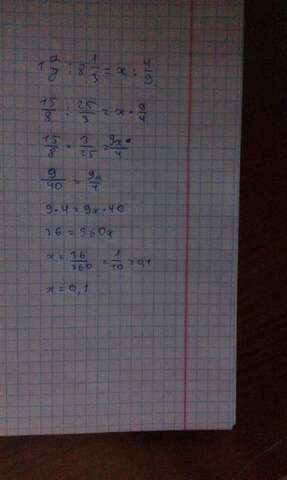 1 7/8 : 8 1/3 = x : 4/9
15/8 : 25/3 = x · 9/4
15/8 · 3/25 = 9x/4
9/40 = 9x/4
9·4 = 9x·40
36 = 360x
x = 36/360 = 1/10 = 0,1
x = 0,1